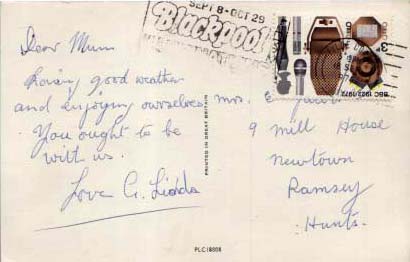 SEPT 8 - OCT 29
Blackpool
3p
BBC 1922/1972
Dear Mum
Loving good weather
and enjoying ourselves
You ought to be
with us.
Love G.
Mrs. E
9 Mill House
Newtown
Ramsey
Hunts.
PRINTED IN GREAT BRITAIN
PLC18808